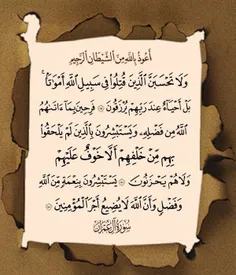 أَعُوذُ بِاللَّهِ مِنَ الشَّيْطَانِ الرَّجِيمِ
وَلَا تَحْسَبَنَّ الَّذِينَ قُتِلُوا فِي سَبِيلِ اللَّهِ أَمْوَاتًا
بَلْ أَحْيَاءٌ عِندَ رَبِّهِمْ يُرْزَقُونَ ۝ فَرِحِينَ بِمَا آتَاهُمُ
اللَّهُ مِن فَضْلِهِ وَيَسْتَبْشِرُونَ بِالَّذِينَ لَمْ يَلْحَقُوا
بِهِم مِّنْ خَلْفِهِمْ أَلَّا خَوْفٌ عَلَيْهِمْ
وَلَا هُمْ يَحْزَنُونَ ۝ يَسْتَبْشِرُونَ بِنِعْمَةٍ مِّنَ اللَّهِ
وَفَضْلٍ وَأَنَّ اللَّهَ لَا يُضِيعُ أَجْرَ الْمُؤْمِنِينَ ۝
سُورَةُ آلِ عِمْرَانَ